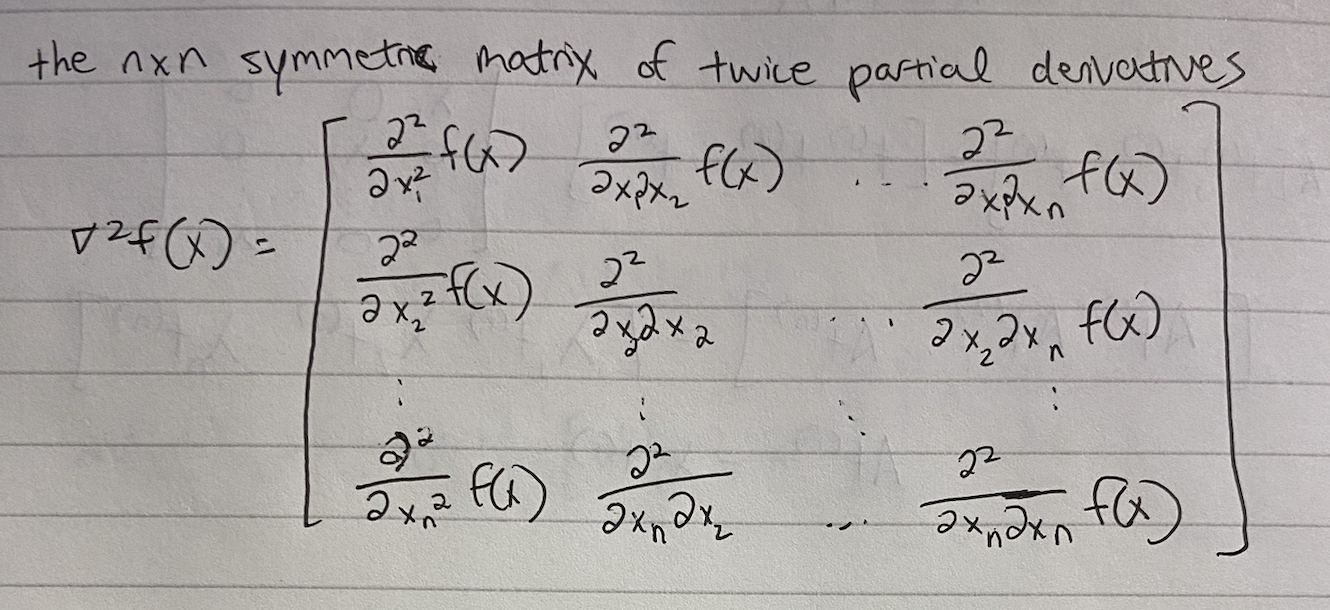 the nxn symmetric matrix of twice partial derivatives
∂²/∂x₁² f(x) ∂²/∂x₁∂x₂ f(x) ... ∂²/∂x₁∂xₙ f(x)
∇²f(x) =
∂²/∂x₂² f(x) ∂²/∂x₂∂x₂ ... ∂²/∂x₂∂xₙ f(x)
⋮ ⋮ ⋱ ⋮
∂²/∂xₙ² f(x) ∂²/∂xₙ∂x₂ ... ∂²/∂xₙ∂xₙ f(x)